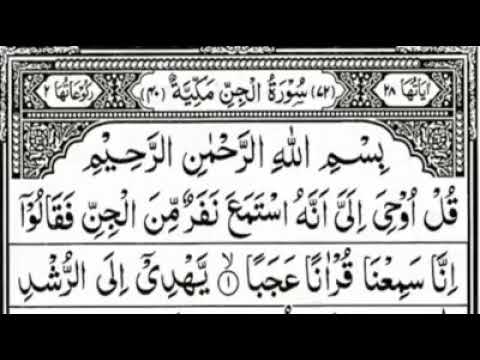 اٰيَاتُهَا ٢٨ (٧٢) سُوْرَةُ الْجِنِّ مَكِّيَّةٌ (٤٠) رُكُوْعَاتُهَا ٢
بِسْمِ اللّٰهِ الرَّحْمٰنِ الرَّحِيْمِ
قُلْ اُوْحِيَ اِلَيَّ اَنَّهُ اسْتَمَعَ نَفَرٌ مِّنَ الْجِنِّ فَقَالُوْۤا
اِنَّا سَمِعْنَا قُرْاٰنًا عَجَبًا ۙ‏﴿۱﴾ يَّهْدِيْۤ اِلَى الرُّشْدِ